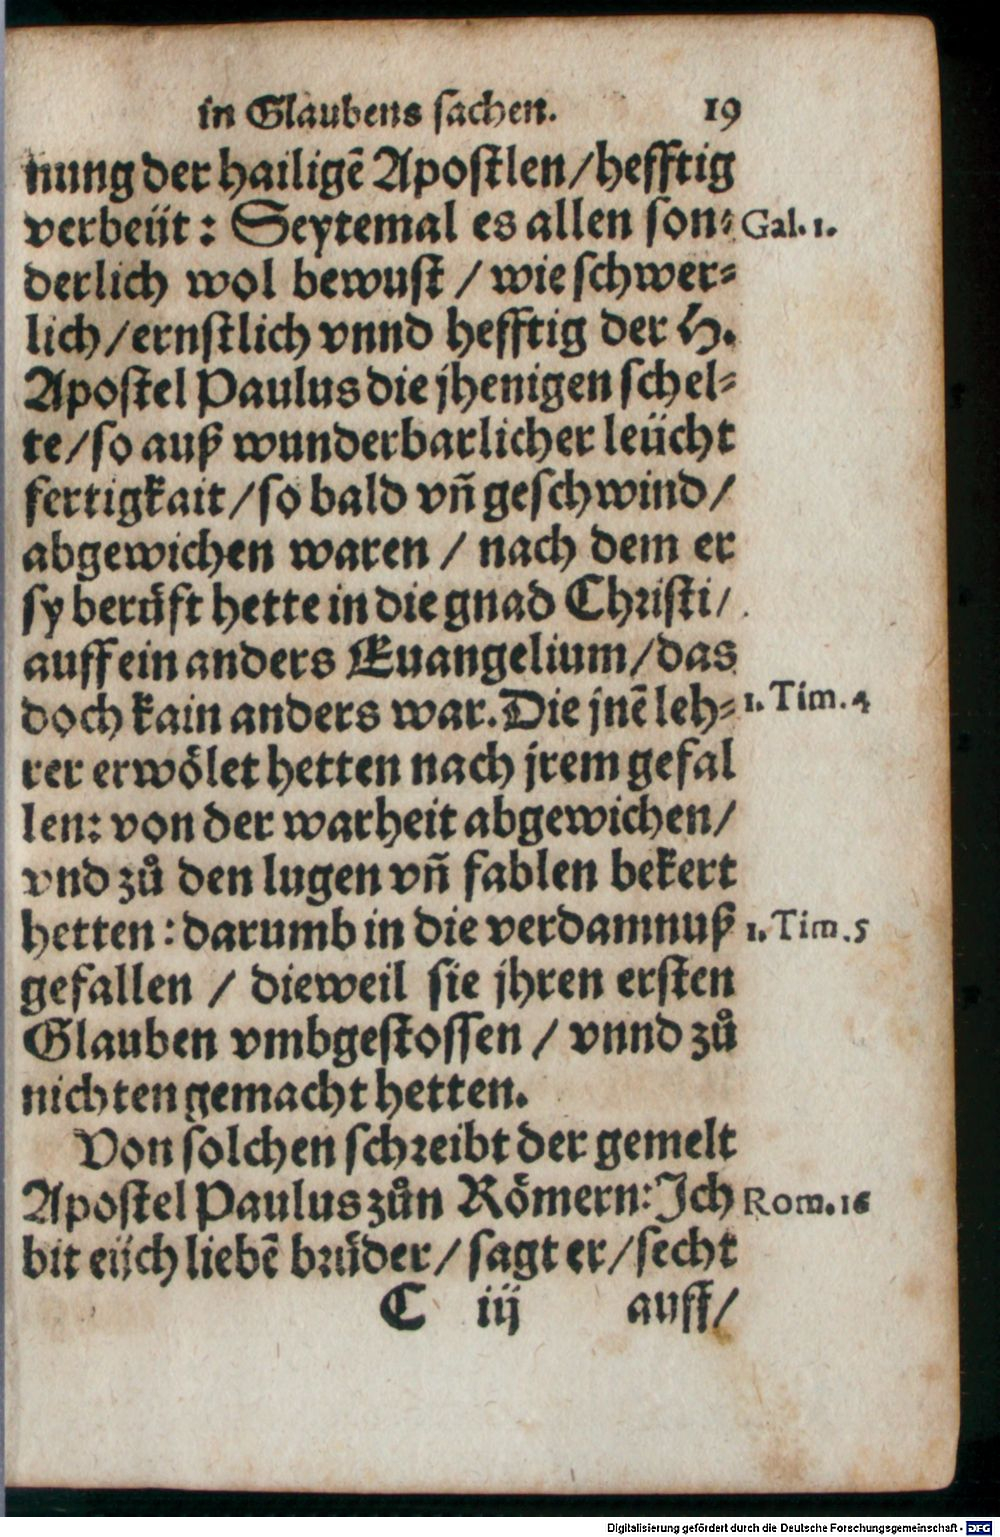 in Glaubens sachen. 19
nung der hailigẽ Apostlen/hefftig
verbeüt: Seytemal es allen son⸗ Gal. 1.
derlich wol bewust / wie schwer⸗
lich/ernstlich vnnd hefftig der H.
Apostel Paulus die jhenigen schel⸗
te/so auß wunderbarlicher leücht
fertigkait/so bald vñ geschwind/
abgewichen waren / nach dem er
sy berůfft hette in die gnad Christi/
auff ein anders Euangelium/das
doch kain anders war. Die jnẽ leh⸗ 1. Tim. 4
rer erwölet hetten nach jrem gefal
len: von der warheit abgewichen/
vnd zů den lugen vñ fablen bekert
hetten: darumb in die verdamnuß 1. Tim. 5
gefallen / dieweil sie jhren ersten
Glauben vmbgestossen / vnnd zů
nichten gemacht hetten.
Von solchen schreibt der gemelt
Apostel Paulus zůn Römern: Ich Rom. 16
bit eüch liebẽ brüder/sagt er/secht
C iij auff/
Digitalisierung gefördert durch die Deutsche Forschungsgemeinschaft - DFG